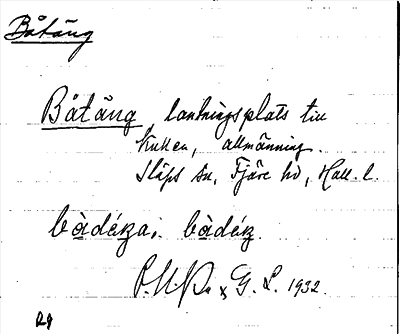 Båtäng
Båtäng, lantningsplats till
Kullen, allmänning.
Släps sn, Fjäre hd, Hall. l.
bàdæ̀ŋa, bàdæ̀ŋ.
G. L. 1932.